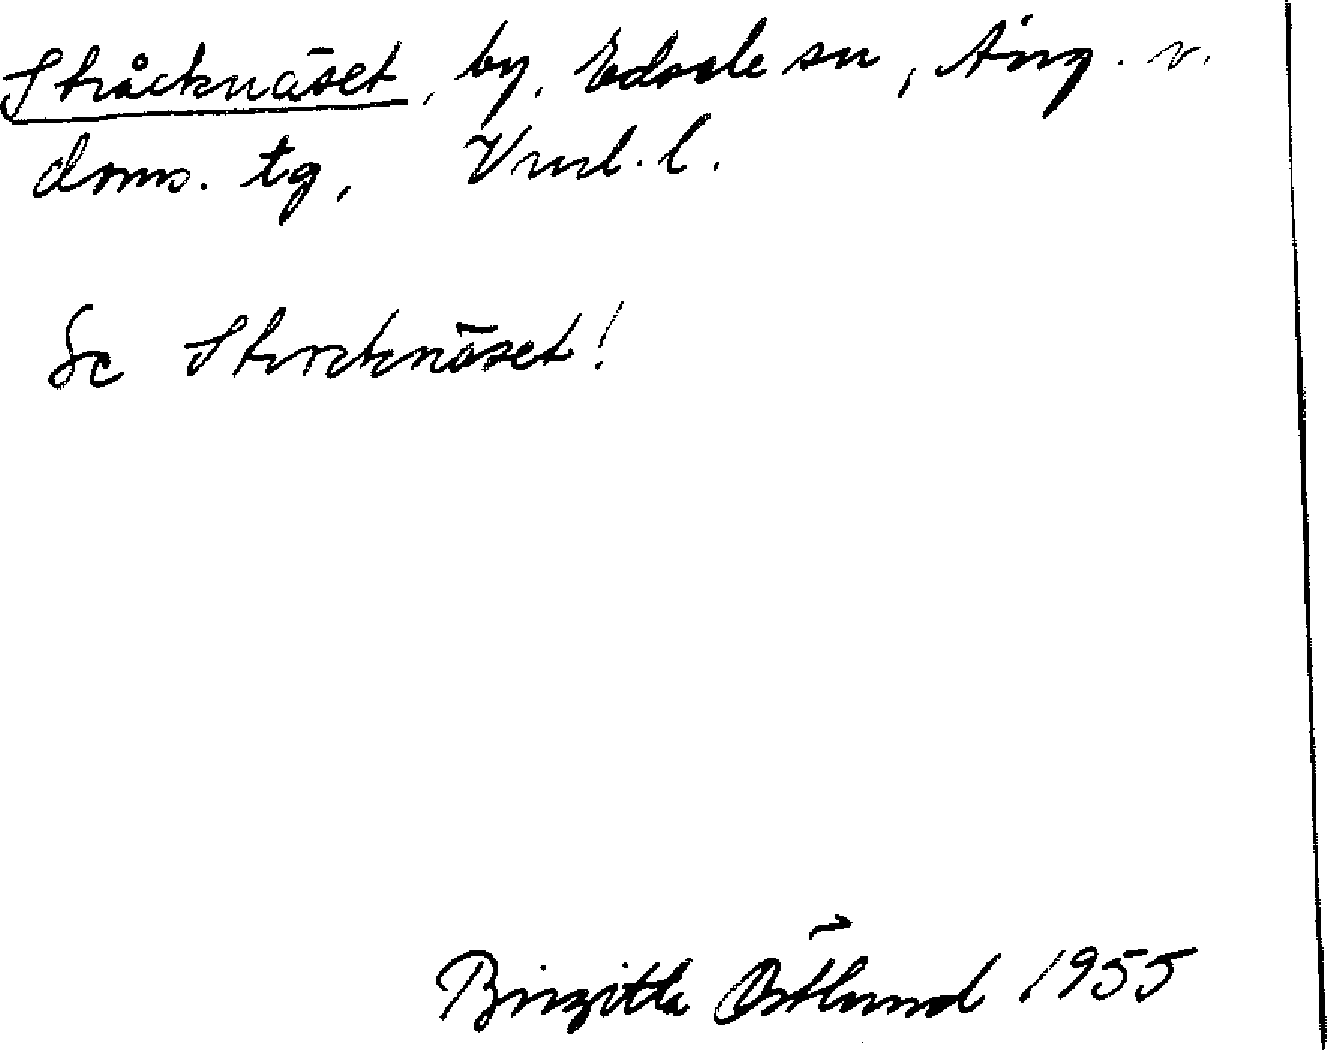 Stråcknäset, by, Edsele sn, Ång. v.
doms. tg, Vnrl. l.
Se Strocknäset!
Birgitta Östlund 1955